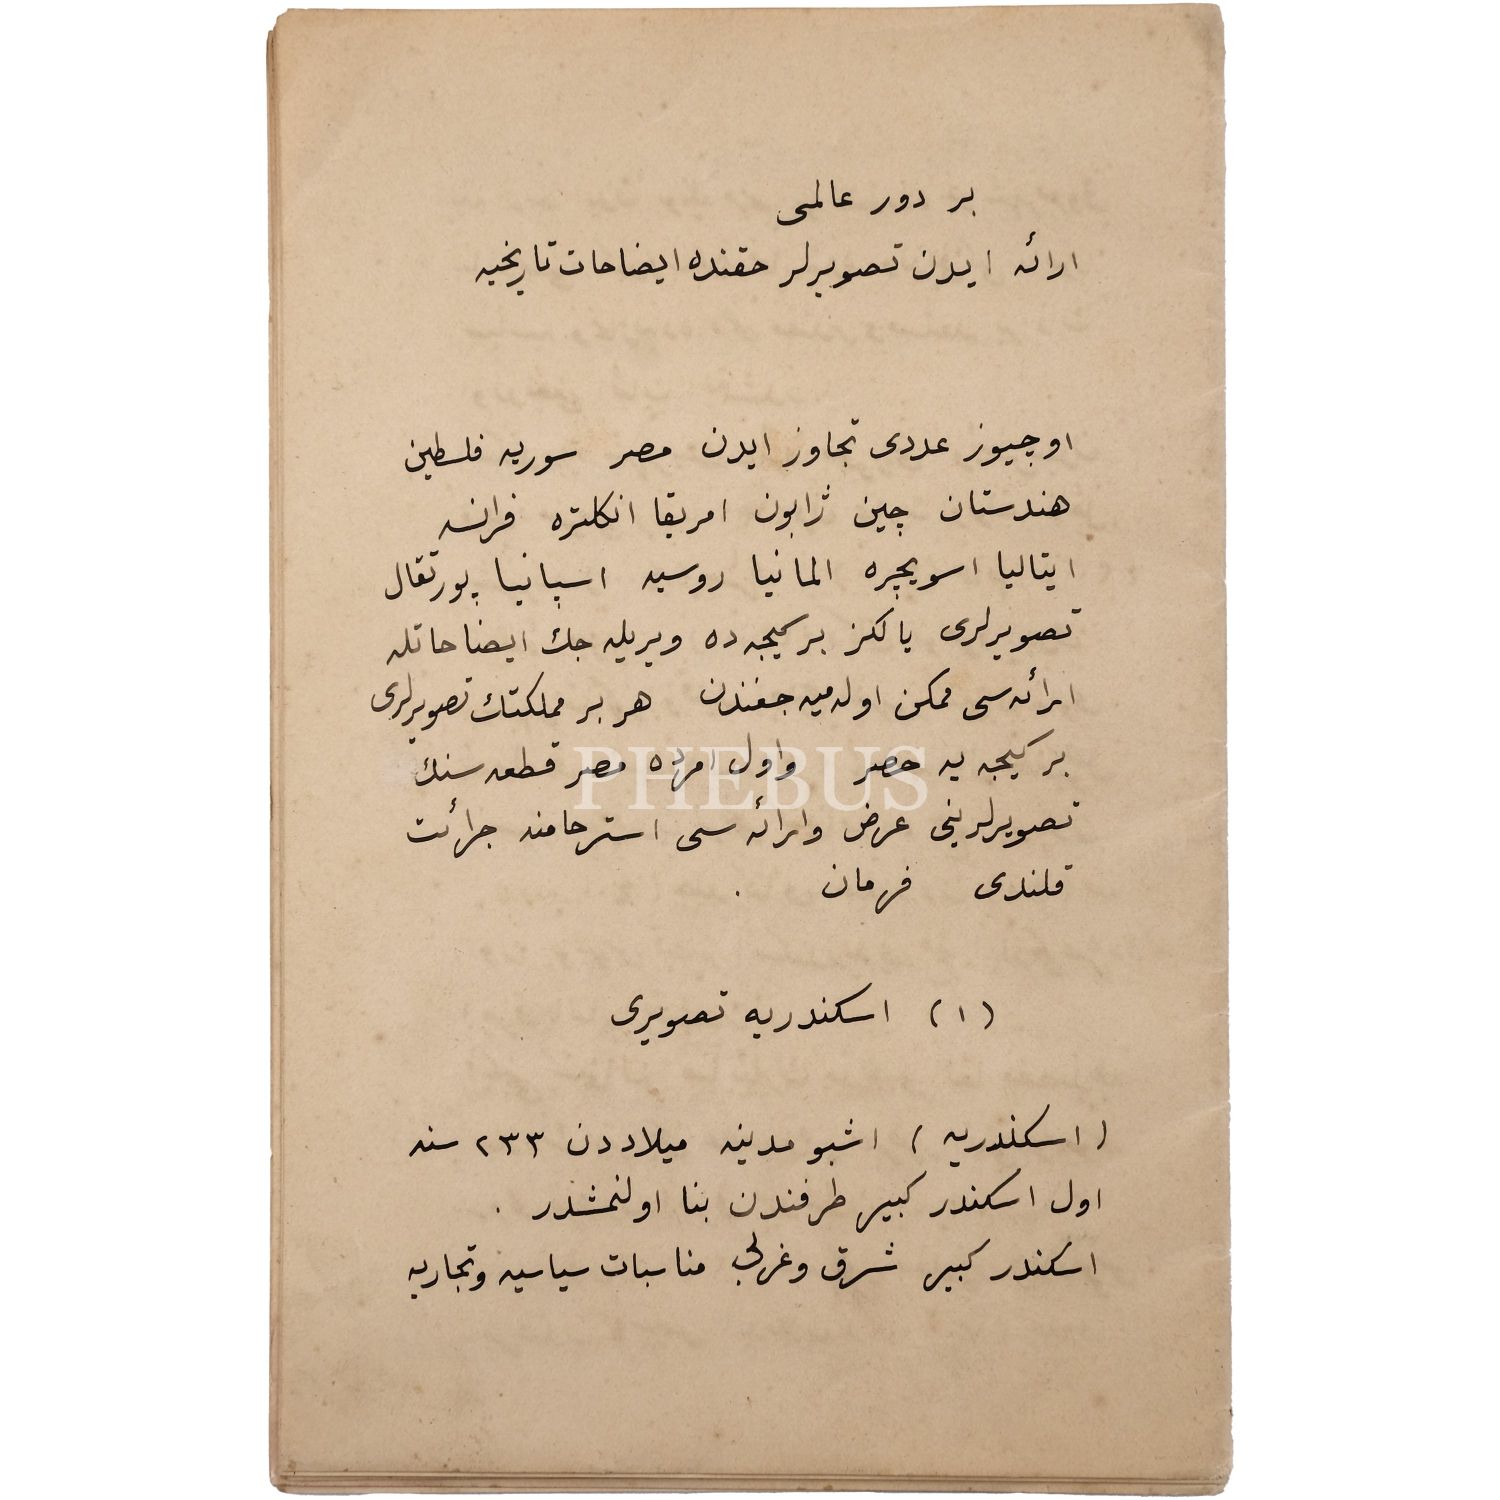 بر دور عالمی
ارائه ایدن تصویرلر حقنده ایضاحات تاریخیه
اوچیوز عددی تجاوز ایدن مصر سوریه فلسطین
هندستان چین ژاپون امریقا انكلتره فرانسه
ایتالیا اسویچره المانیا روسیه اسپانیا پورتقال
تصویرلری یالكز بر كیجه ده ویریله جك ایضاحاتله
ارائه سی ممكن اوله میه جغندن هر بر مملكتك تصویرلری
بر كیجه یه حصر واول امرده مصر قطعه سنك
PHEBUS
تصویرلرینی عرض وارائه سی استرحامنه جرأت
قلندی فرمان .
(١) اسكندریه تصویری
(اسكندریه) اشبو مدینه میلاددن ٢٣٣ سنه
اول اسكندر كبیر طرفندن بنا اولنمشدر .
اسكندر كبیر شرق وغربی مناسبات سیاسیه وتجاریه